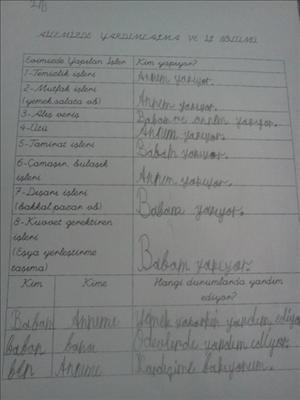 AİLEMİZDE YARDIMLAŞMA VE İŞ BÖLÜMÜ
Evimizde Yapılan İşler Kim yapıyor?
1-Temizlik işleri Annem yapıyor.
2-Mutfak işleri
(yemek,salata vb) Annem yapıyor.
3-Alış veriş Babam ve annem yapıyor.
4-Ütü Annem yapıyor.
5-Tamirat işleri Babam yapıyor.
6-Çamaşır, bulaşık
işleri Annem yapıyor.
7-Dışarı işleri
(bakkal,pazar vb) Babam yapıyor.
8-Kuvvet gerektiren
işleri
(Eşya yerleştirme
taşıma) Babam yapıyor.
Kim Kime Hangi durumlarda yardım
ediyor?
Babam Anneme Yemek yaparken yardım ediyor
babam bana Ödevlerde yardım ediyor.
ben Anneme Kardeşime bakıyorum.